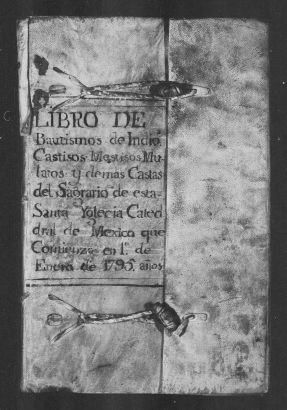 LIBRO DE
Bautismos de Indio,
Castisos Mestisos Mu
latos y demas Castas
del Sagrario de esta
Santa Yglecia Cated
dral de Mexico que
Comienza en 1º. de
Enero de 1796, años